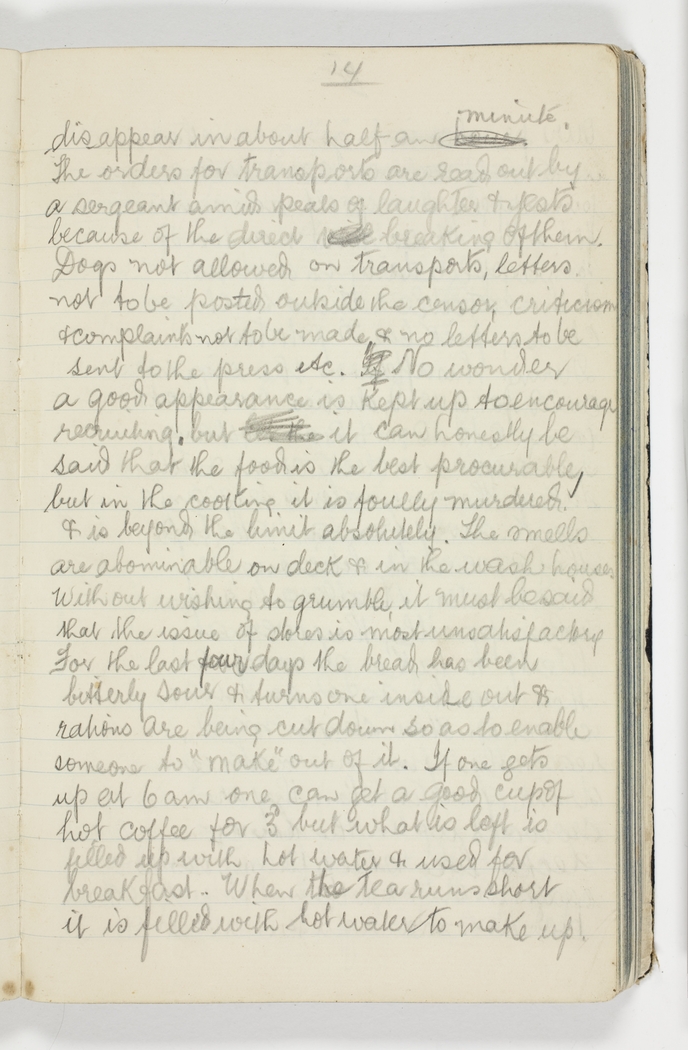 14
minute.
disappear in about half an hour.
The orders for transports are read out by
a sergeant amid peals of laughter & jests
because of the direct breaking of them.
Dogs not allowed on transports, letters
not to be posted outside the censor, criticism
& complaints not to be made, & no letters to be
sent to the press etc. No wonder
a good appearance is kept up to encourage
recruiting, but it can honestly be
said that the food is the best procurable,
but in the cooking it is foully murdered.
& is beyond the limit absolutely. The smells
are abominable on deck & in the wash houses
Without wishing to grumble, it must be said
that the issue of stores is most unsatisfactory
For the last four days the bread has been
bitterly sour & turns one inside out &
rations are being cut down so as to enable
someone to "make" out of it. If one gets
up at 6 am one can get a good cup of
hot coffee for 3d but what is left is
filled up with hot water & used for
breakfast.. When the tea runs short
it is filled with hot water to make up.